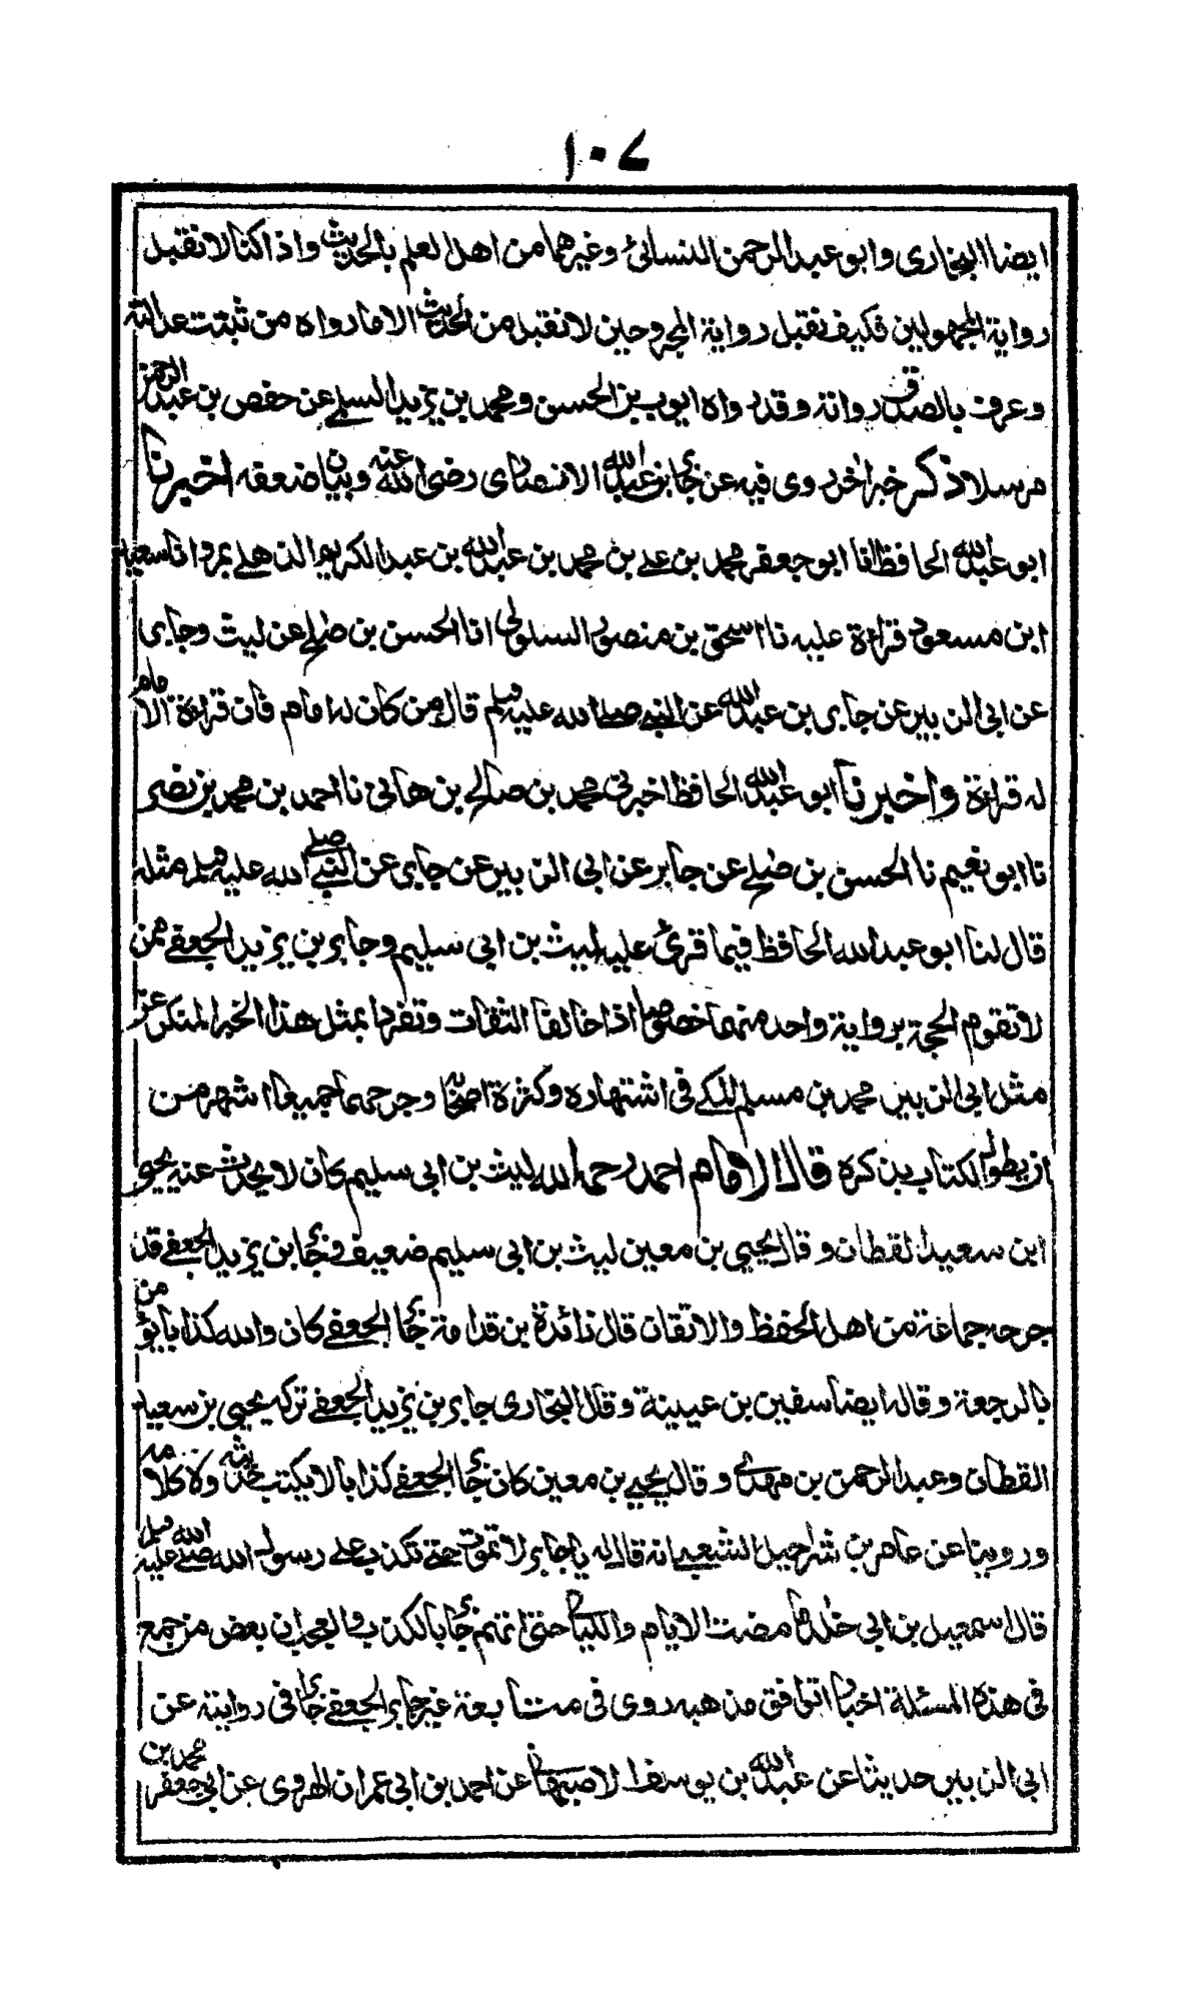 ١٠٧
ايضا البخاري وابو عبد الرحمن النسائي وغيرهما من اهل العلم بالحديث واذا كنا لا نقبل
رواية المجهولين فكيف نقبل رواية المجروحين لا نقبل من الحديث الا ما رواه من ثبتت عدالته
وعرف بالصدق رواته وقد رواه ايوب بن الحسن ومحمد بن يزيد السلمي عن حفص بن عبد الرحمن
مرسلا ذكر خبر اخر روي فيه عن جابر بن عبد الله الانصاري رضى الله عنه وبيان ضعفه اخبرنا
ابو عبد الله الحافظ انا ابو جعفر محمد بن علي بن محمد بن عبد الله بن عبد الكريم الذهلي بمرو انا سعيد
ابن مسعود قراءة عليه نا اسحق بن منصور السلولي انا الحسن بن صلح عن ليث وجابر
عن ابي الزبير عن جابر بن عبد الله عن النبي صلى الله عليه وسلم قال من كان له امام فان قراءة الامام
له قراءة واخبرنا ابو عبد الله الحافظ اخبرني محمد بن صالح بن هاني نا احمد بن محمد بن نصر
نا ابو نعيم نا الحسن بن صلح عن جابر عن ابي الزبير عن جابر عن النبي صلى الله عليه وسلم مثله
قال لنا ابو عبد الله الحافظ فيما قرئ عليه ليث بن ابي سليم وجابر بن يزيد الجعفي ممن
لا تقوم الحجة برواية واحد منهما خصوصا اذا خالفا الثقات وتفردا بمثل هذا الخبر المنكر عن
مثل ابي الزبير محمد بن مسلم المكي في اشتهاره وكثرة اصحابه وجرحهما جميعا اشهر من
ان يطول الكتاب بذكره قال الامام احمد رحمه الله ليث بن ابي سليم كان لا يحدث عنه يحيى
ابن سعيد القطان وقال يحيى بن معين ليث بن ابي سليم ضعيف وجابر بن يزيد الجعفي قد
جرحه جماعة من اهل الحفظ والاتقان قال زائدة بن قدامة جابر الجعفي كان والله كذابا يؤمن
بالرجعة وقاله ايضا سفين بن عيينة وقال البخاري جابر بن يزيد الجعفي تركه يحيى بن سعيد
القطان وعبد الرحمن بن مهدي وقال يحيى بن معين كان جابر الجعفي كذابا لا يكتب حديثه ولا كلامه
وروينا عن عامر بن شراحيل الشعبي انه قال له يا جابر لا تموت حتى تكذب على رسول الله صلى الله عليه وسلم
قال اسمعيل بن ابي خالد ما مضت الايام والليالي حتى اتهم جابر بالكذب والعجب ان بعض من جمع
في هذه المسئلة اخبارا توافق مذهبه روى في متابعة غير جابر الجعفي جابرا في روايته عن
ابي الزبير حديثا عن عبد الله بن يوسف الاصبهاني عن احمد بن ابي عمران الهروي عن ابي جعفر محمد بن